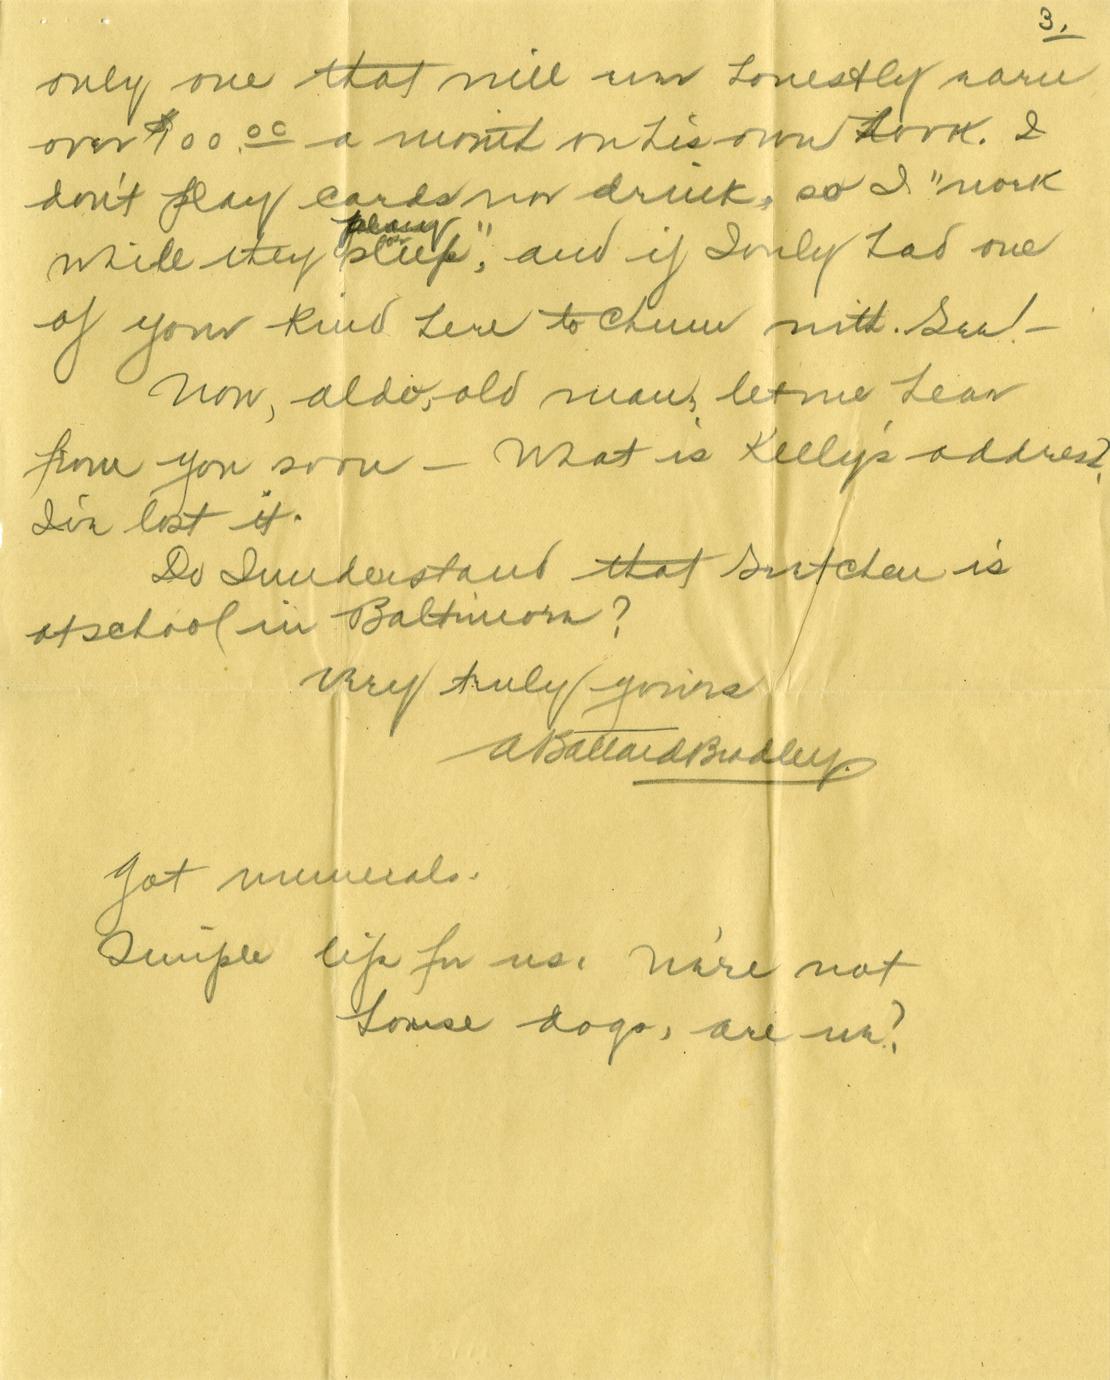 3.
only one that will ever honestly earn
over $100.00 a month on his own hook. I
don't play cards nor drink, so I "work
while they play or sleep", and if I only had one
of your kind here to chum with. Gee! —
Now, Aldo, old man, let me hear
from you soon — What is Kelly's address?
I've lost it.
Do I understand that Gretchen is
at school in Baltimore?
Very truly yours
A Ballard Bradley.
Got numerals.
Simple life for us. We're not
house dogs, are we?